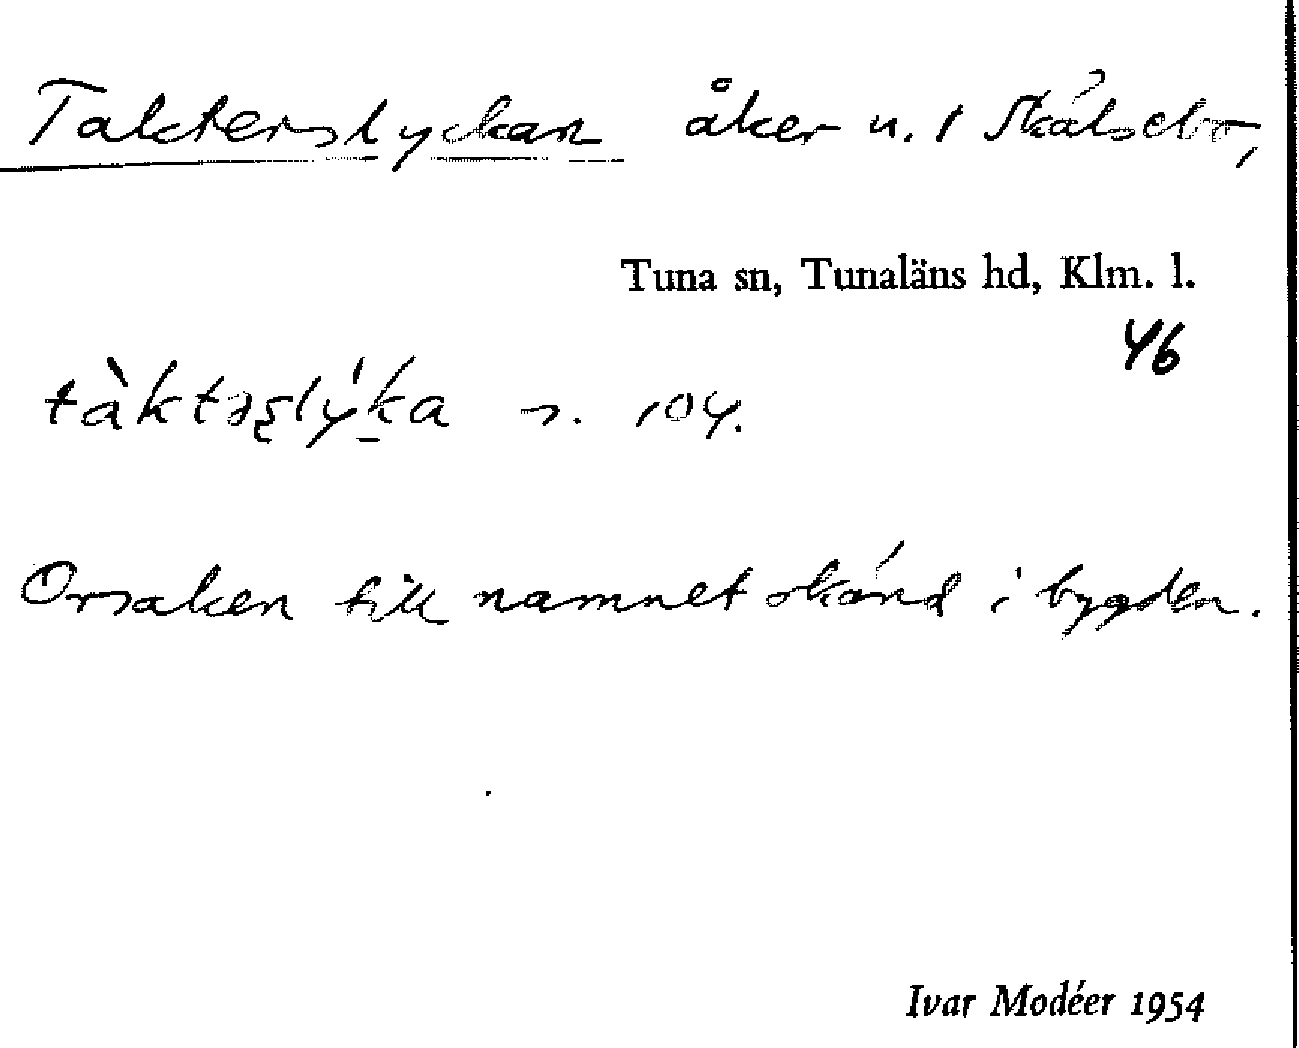 Takterslyckan åker u. 1 Skälsebo,
Tuna sn, Tunaläns hd, Klm. l.
46
tàktəʂlý̇ka n. 104.
Orsaken till namnet okänd i bygden.
Ivar Modéer 1954